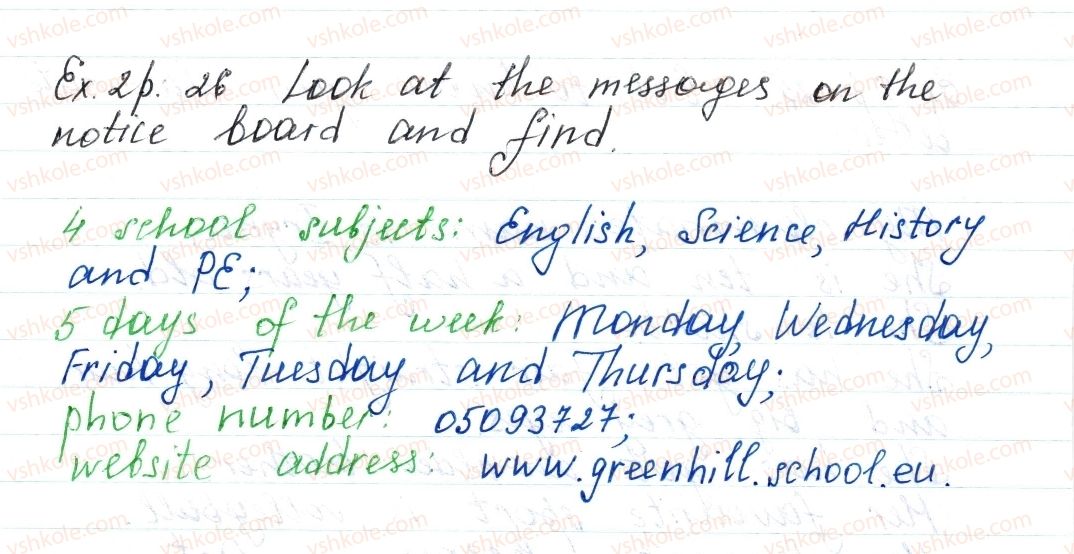 Ex. 2p. 26 Look at the messages on the
notice board and find.
4 school subjects: English, Science, History
and PE;
5 days of the week: Monday, Wednesday,
Friday, Tuesday and Thursday;
phone number: 05093727;
website address: www.greenhill.school.eu.